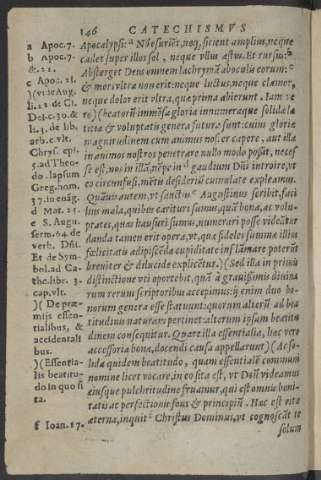 146 CATECHISMVS
a Apoc. 7.
b Apoc. 7.
& 21.
c Apoc. 21.
)( vide Aug.
li. 22 de Ci.
Dei. c. 30 &
li. 3. de lib.
arb. c. vlt.
Chrys. epi.
5. ad Theo-
do. lapsum
Greg. hom.
37. in euãg.
d Mat. 25.
e S. Aug.
serm. 64 de
verb. Dñi.
Et de Sym-
bol. ad Ca-
the. libr. 3.
cap. vlt.
)( De præ-
mijs essen-
tialibus, &
accidental.
bus.
)( Essentia-
lis beatitu-
do in quo si
ta.
f Ioan. 17.
Apocalypsi: ª Nõ esuriẽt, neq; sitient amplius, neque
cadet super illos sol, neque vllus æstus. Et rursus: ᵇ
Absterget Deus omnem lachrymã ab oculis eorum: ᶜ
& mors vltra non erit: neque luctus, neque clamor,
neque dolor erit vltra, quæ prima abierunt. Iam ve
ro )( beatorũ immẽsa gloria innumeraque solidæ læ
titiæ & voluptatis genera futura sunt: cuius gloriæ
magnitudinem cum animus nostær capere, aut illa
in animos nostros penetrare nullo modo possit, neces
se est, nos in illã, nẽpe in ᵈ gaudium Dñi introire, vt
eo circumfusi, mẽtis desideriũ cumulate expleamus.
Quãuis autem, vt sanctus ᵉ Augustinus scribit, faci
lius mala, quibus carituri sumus, quã bona, ac volu-
ptates, quas hausuri sumus, numerari posse videãtur
danda tamen erit opera, vt, quæ fideles summæ illius
fœlicitatis adipiscẽdæ cupiditate inflãmare poterũt
breuiter & dilucide explicẽtur. )( Sed illa in primis
distinctione vti oportebit, quã à grauissimis diuina
rum rerum scriptoribus accepimus: ij enim duo bo-
norum genera esse statuunt: quorum alterũ ad bea
titudinis naturam pertinet: alterum ipsam beatitu
dinem consequitur. Quare illa essentialia, hæc vero
accessoria bona, docendi causa appellarunt )( Ac so-
lida quidem beatitudo, quam essentialẽ communi
nomine licet vocare, in eo sita est, vt Deũ videamus
eiusque pulchritudine fruamur, qui est omnis boni-
tatis ac perfectionis fons & principiũ. Hæc est vita
æterna, inquit ᶠ Christus Dominus, vt cognoscãt te
solum